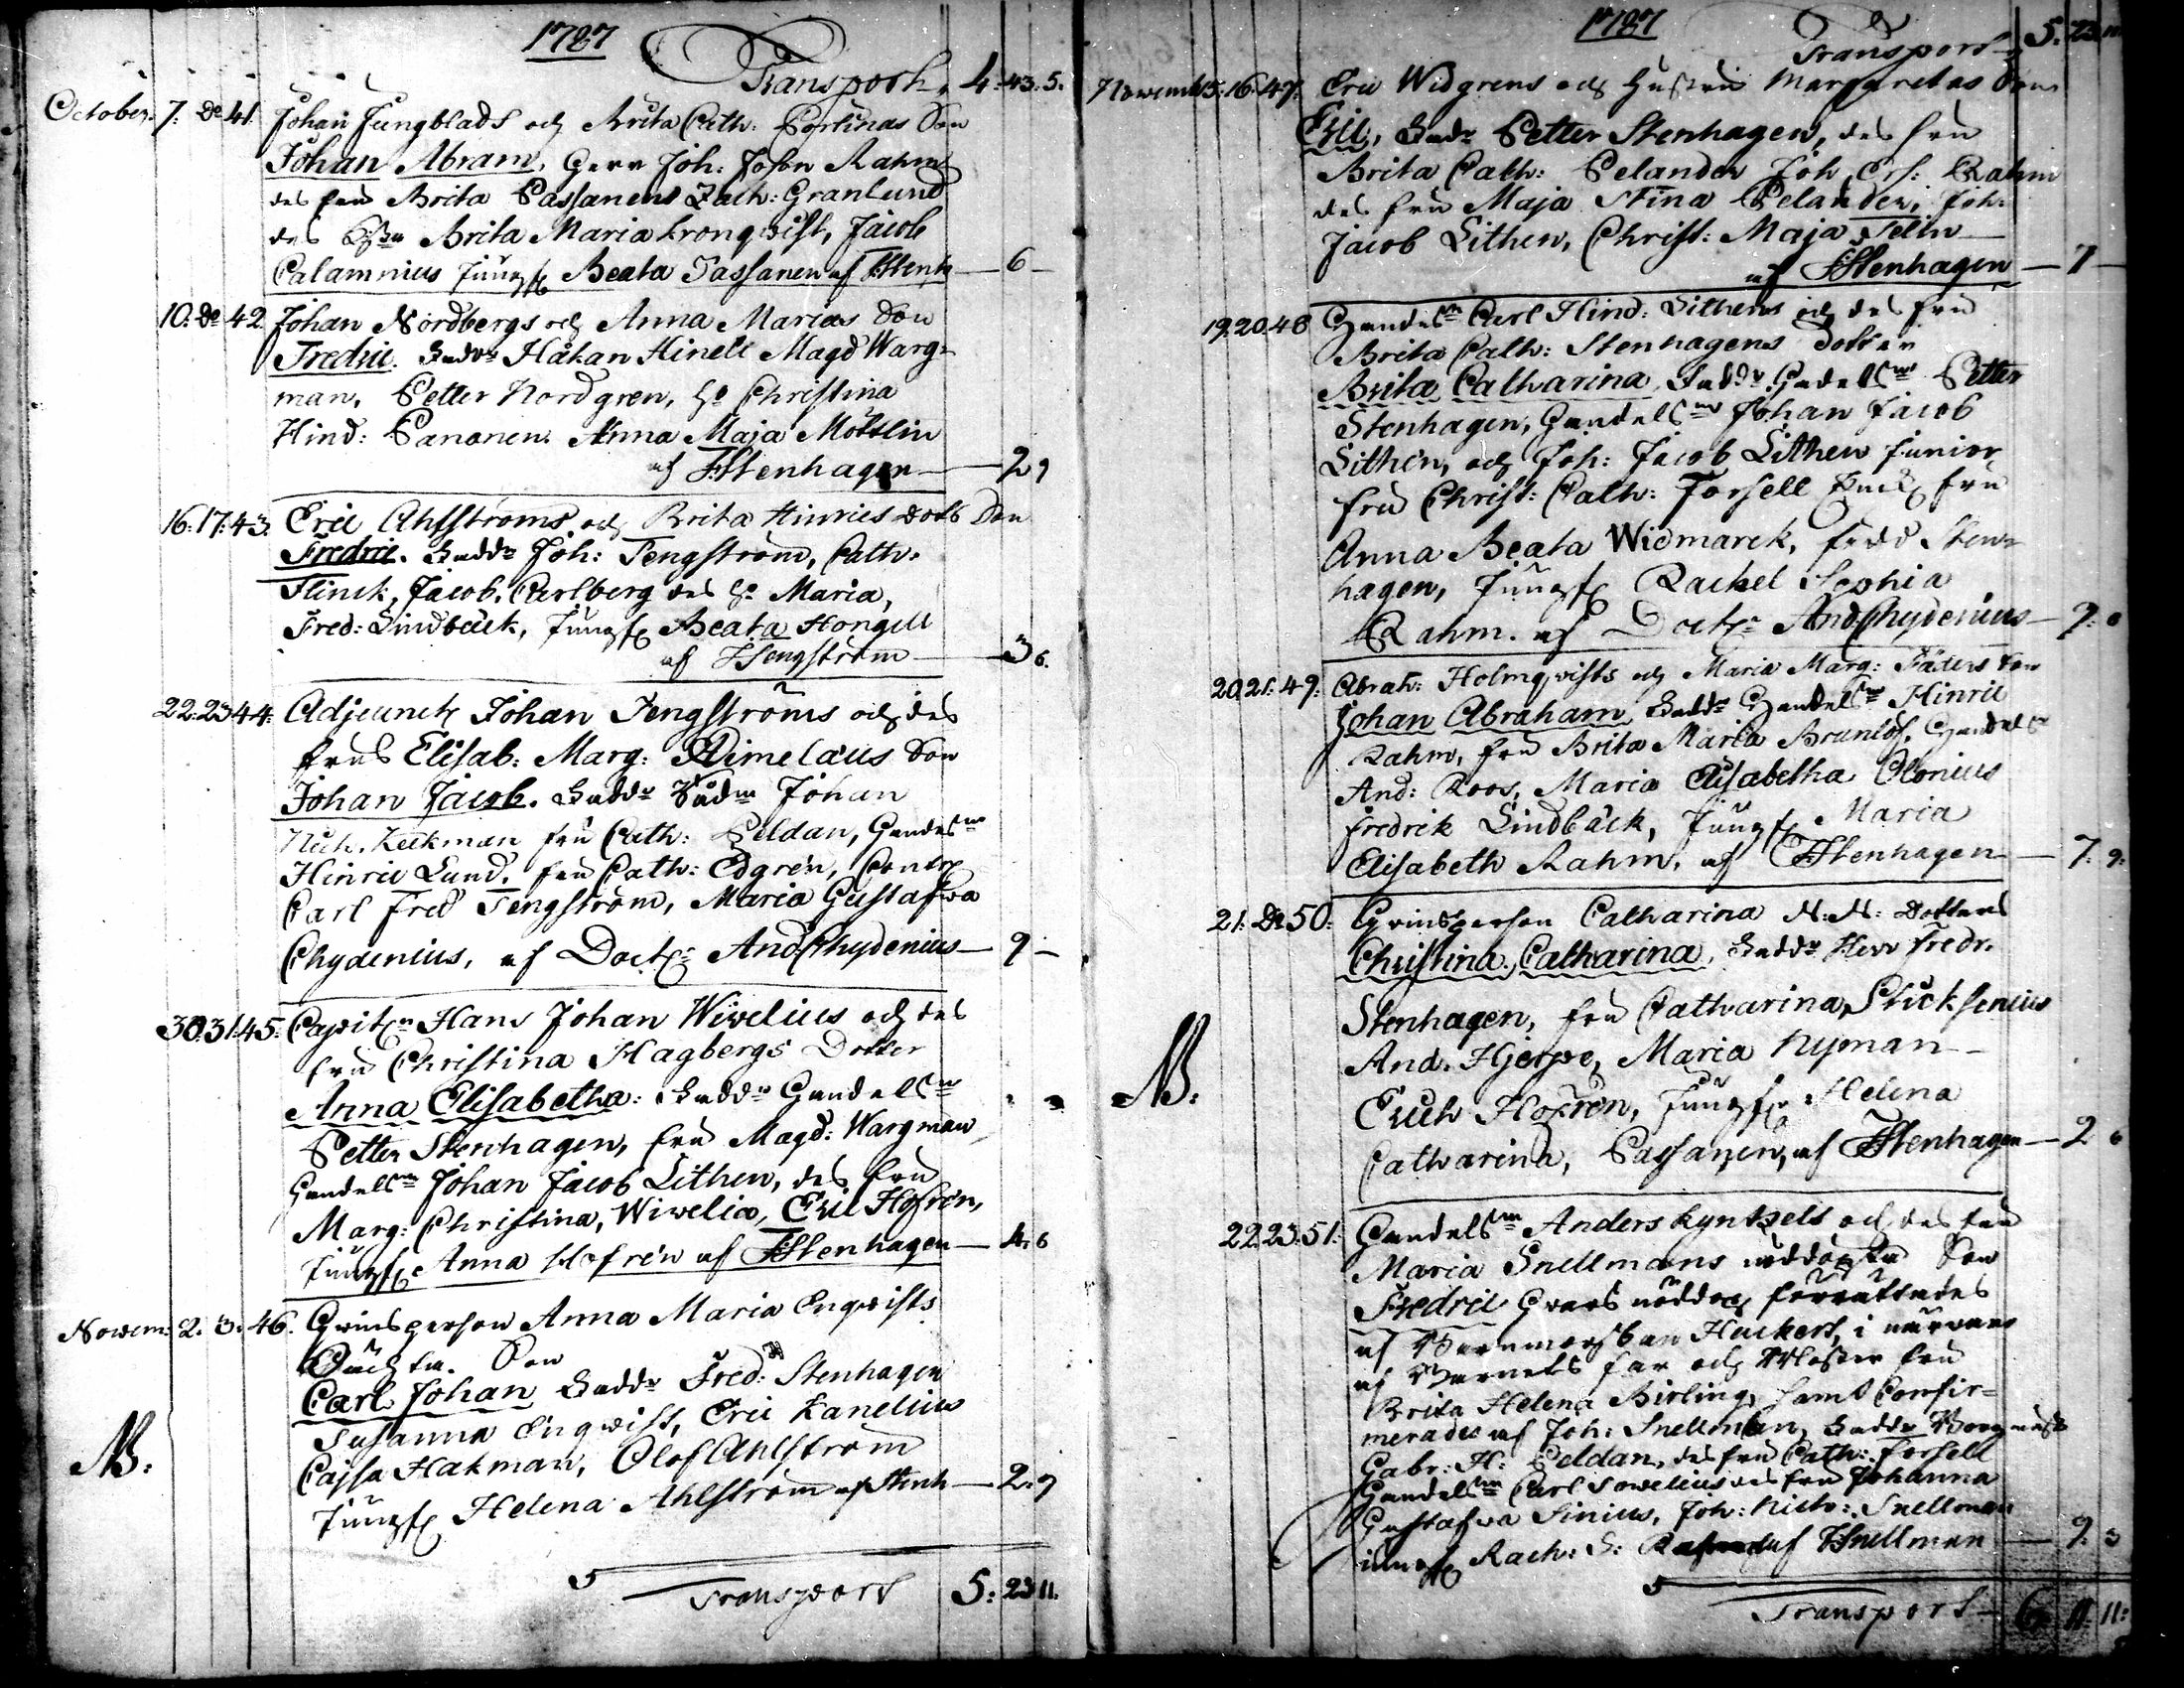 1787
Transport, 4. 43. 5.
October. 7. Do 41. Johan Jungblads och Brita Cath: Portinas Son
Johan Abram, Herr Joh: Rahm
des fru Brita Passanens Zach: Granlund
des Brita Maria Kronqvist, Jacob
Calamnius Jungf Beata Passanen af FStenh — 6 —
10. Do 42. Johan Nordbergs och Anna Marias Son
Fredric. Faddr Håkan Hinell Magd Warg=
man, Petter Nordgren, H. Christina
Hind: Pananen. Anna Maja Möttlin
af FStenhagen — 2 9
16. 17. 43. Eric Ahlströms och Brita Hinrics dotts Son
Fredric. Faddr Joh: Tengström, Cath.
Flinck, Jacob. Carlberg des H. Maria,
Fred: Lindbäck, Jungf Beata Hongell
af JTengström — 3 6.
22. 23 44. Adjunct Johan Tengströms och des
frus Elisab: Marg: Aimelæus Son
Johan Jacob. Faddr Rådm Johan
Nich. Keckman fru Cath: Peldan, Handelsm
Hinric Lund. fru Cath: Edgrén,
Carl Fred Tengström, Maria Gustafva
Chydenius, af Doct: And Chydenius — 9 —
30. 31. 45. Capit Hans Johan Wiwelius och des
fru Christina Hagbergs Dotter
Anna Elisabetha: Faddr Handelsm
Petter Stenhagen, fru Magd: Wargman
Handelsm Johan Jacob Lithen, des fru
Marg: Christina, Wiwelia, Eric Hofrén,
Jungf Anna Hofrén af FStenhagen — 4. 6
Novem: 2. 3. 46. Qvinsperson Anna Maria Enqvists
Oächta. Son
Carl Johan Faddr Fred: Stenhagen
Susanna Enqvist, Eric Kanelius
NB. Cajsa Hakman, Olof Ahlström
Jungf Helena Ahlström af Stenh — 2. 9
Transport 5: 23 11.
1787
Transport 5. 23. 11
Novemb 15. 16. 47. Eric Widgrens och hustru Margaretas Son
Eric, Faddr Petter Stenhagen, des fru
Brita Cath: Pelander Joh Rahm
des fru Maja Stina Pelander, Joh:
Jacob Lithen, Christ: Maja Tellin
af FStenhagen — 7 —
19. 20. 48 Handelsm Carl Hind: Lithens och des fru
Brita Cath: Stenhagens Dotter
Brita Catharina, Faddr Handelsm Petter
Stenhagen, Handelsm Johan Jacob
Lithén, och Joh: Jacob Lithen Junior
fru Christ: Cath: Forsell fru
Anna Beata Widmarck, född Sten=
hagen, Jungf Rachel Sophia
Rahm. af Doct: And Chydenius — 9: 6
20. 21. 49: Abrah: Holmqvists och Maria Marg: Fäders Son
Johan Abraham Faddr Handelsm Hinric
Rahm, fru Brita Maria Brunlöf, Handelsm
And: Roos, Maria Elisabetha Olonius
Fredrik Lindbäck, Jungf Maria
Elisabeth Rahm. af FStenhagen — 7. 9.
21. Do 50: Qvinsperson Catharina N: N: Dotters
Christina Catharina, Faddr Herr Fredr.
Stenhagen, fru Catharina Stücksenius
NB: And. Hjerpe, Maria Nyman
Erich Hofrén, Jungfr Helena
Catharina, Passanen, af FStenhagen — 2 6
22. 23. 51. Handelsm Anders Kyntzels och des fru
Maria Snellmans nöddöpta Son
Fredric Hvars nöddop förrättades
af Barnmorskan Huckert, i närvaro
af Barnets far och Moster fru
Brita Helena Birling, samt Confir=
merades af Joh: Snellman, Faddr Borgmäst
Gabr: H: Peldan, des fru Cath: Forsell
Handelsm Carl Sovelius des fru Johanna
Gustafva Sinius, Joh: Nich: Snellman
Jungf Rach: S: af JSnellman — 9. 3
Transport 6. 11. 11: